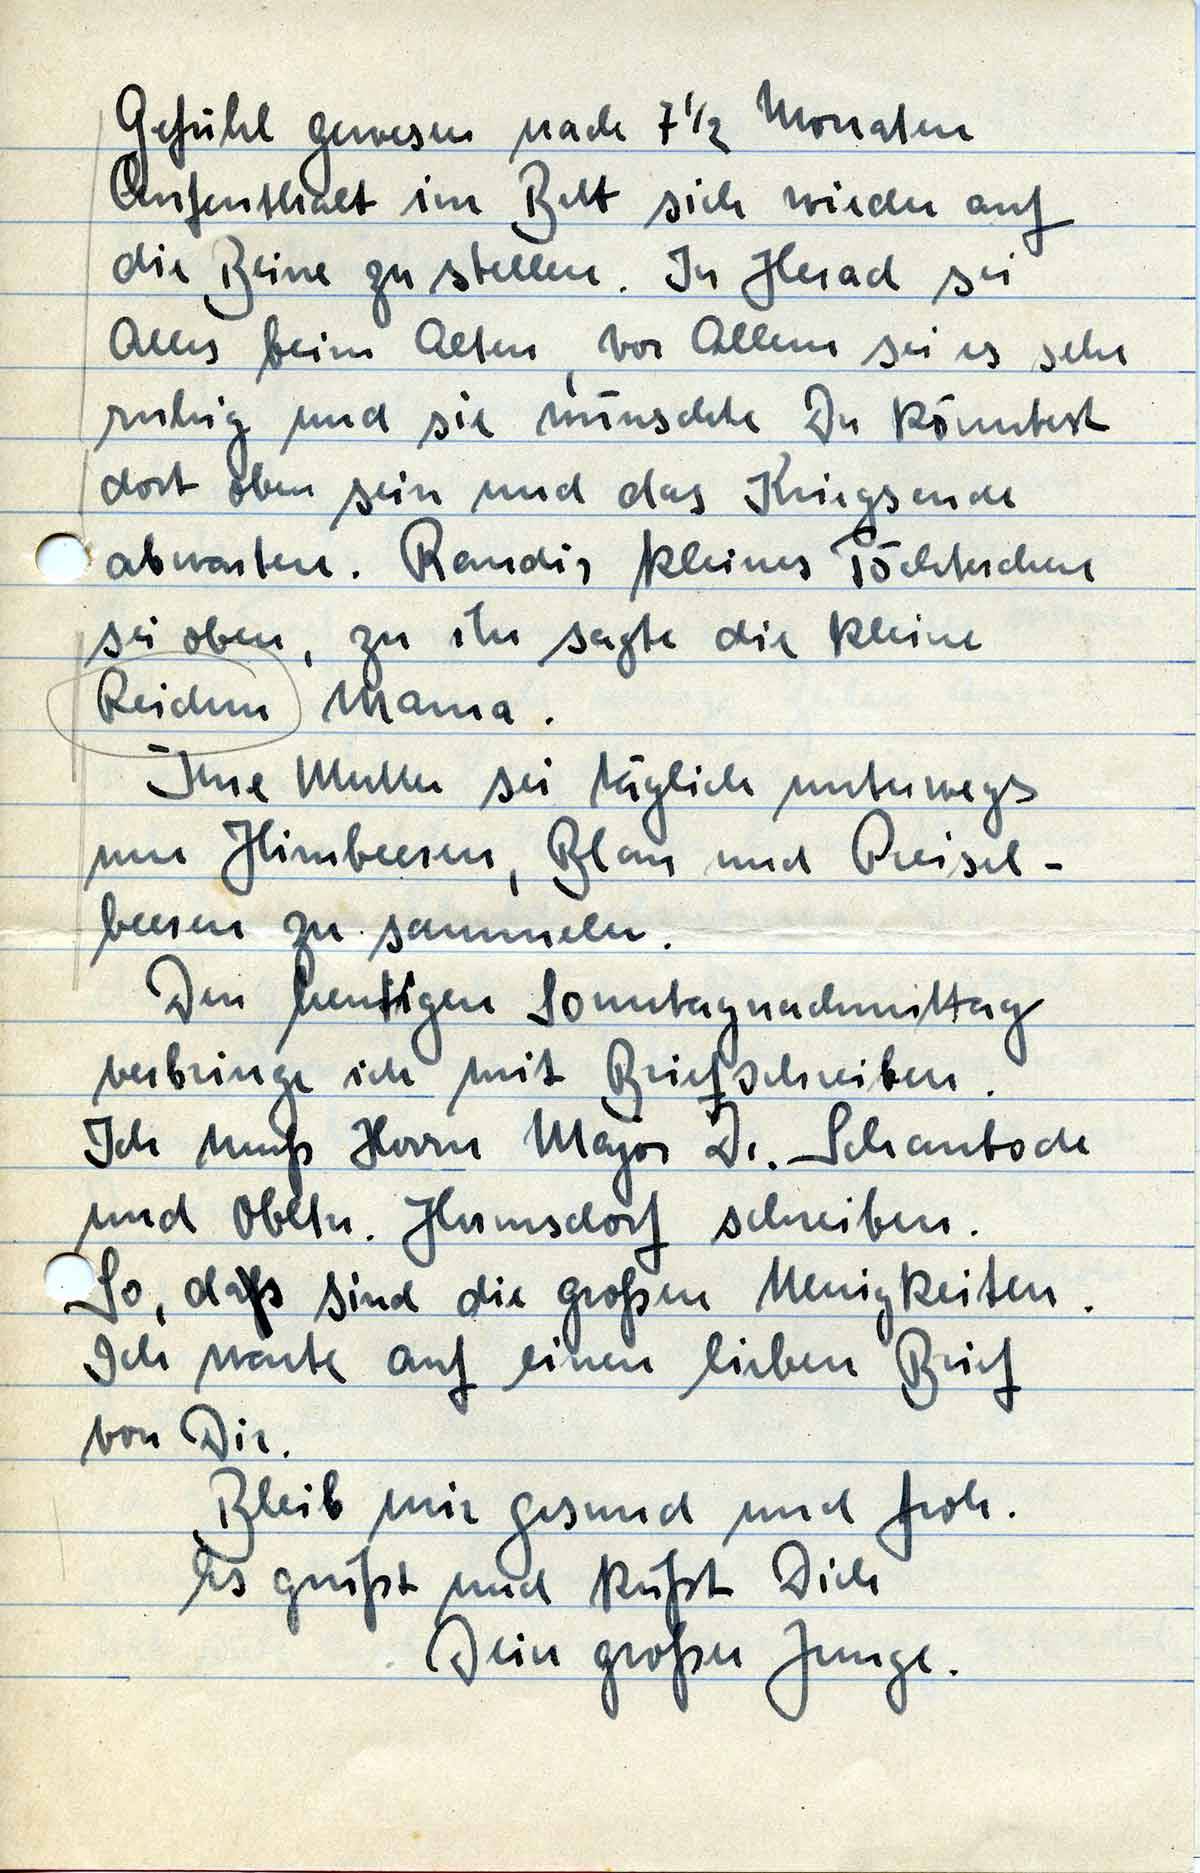 Gefühl gewesen nach 7 1/2 Monaten
Aufenthalt im Bett sich wieder auf
die Beine zu stellen. In Herad sei
Alles beim Alten, vor Allem sei es sehr
ruhig und sie wünschte Du könntest
dort oben sein und das Kriegsende
abwarten. Randis kleines Töchterchen
sei oben, zu ihr sagte die kleine
Reidun Mama.
Ihre Mutter sei täglich unterwegs
um Himbeeren, Blau und Preisel-
beeren zu sammeln.
Den heutigen Sonntagnachmittag
verbringe ich mit Briefschreiben.
Ich muß Herrn Major Dr. Schantode
und Obltn. Hermsdorf schreiben.
So, daß sind die großen Neuigkeiten.
Ich warte auf einen lieben Brief
von Dir.
Bleib mir gesund und froh.
Es grüßt und küßt Dich
Dein großer Junge.